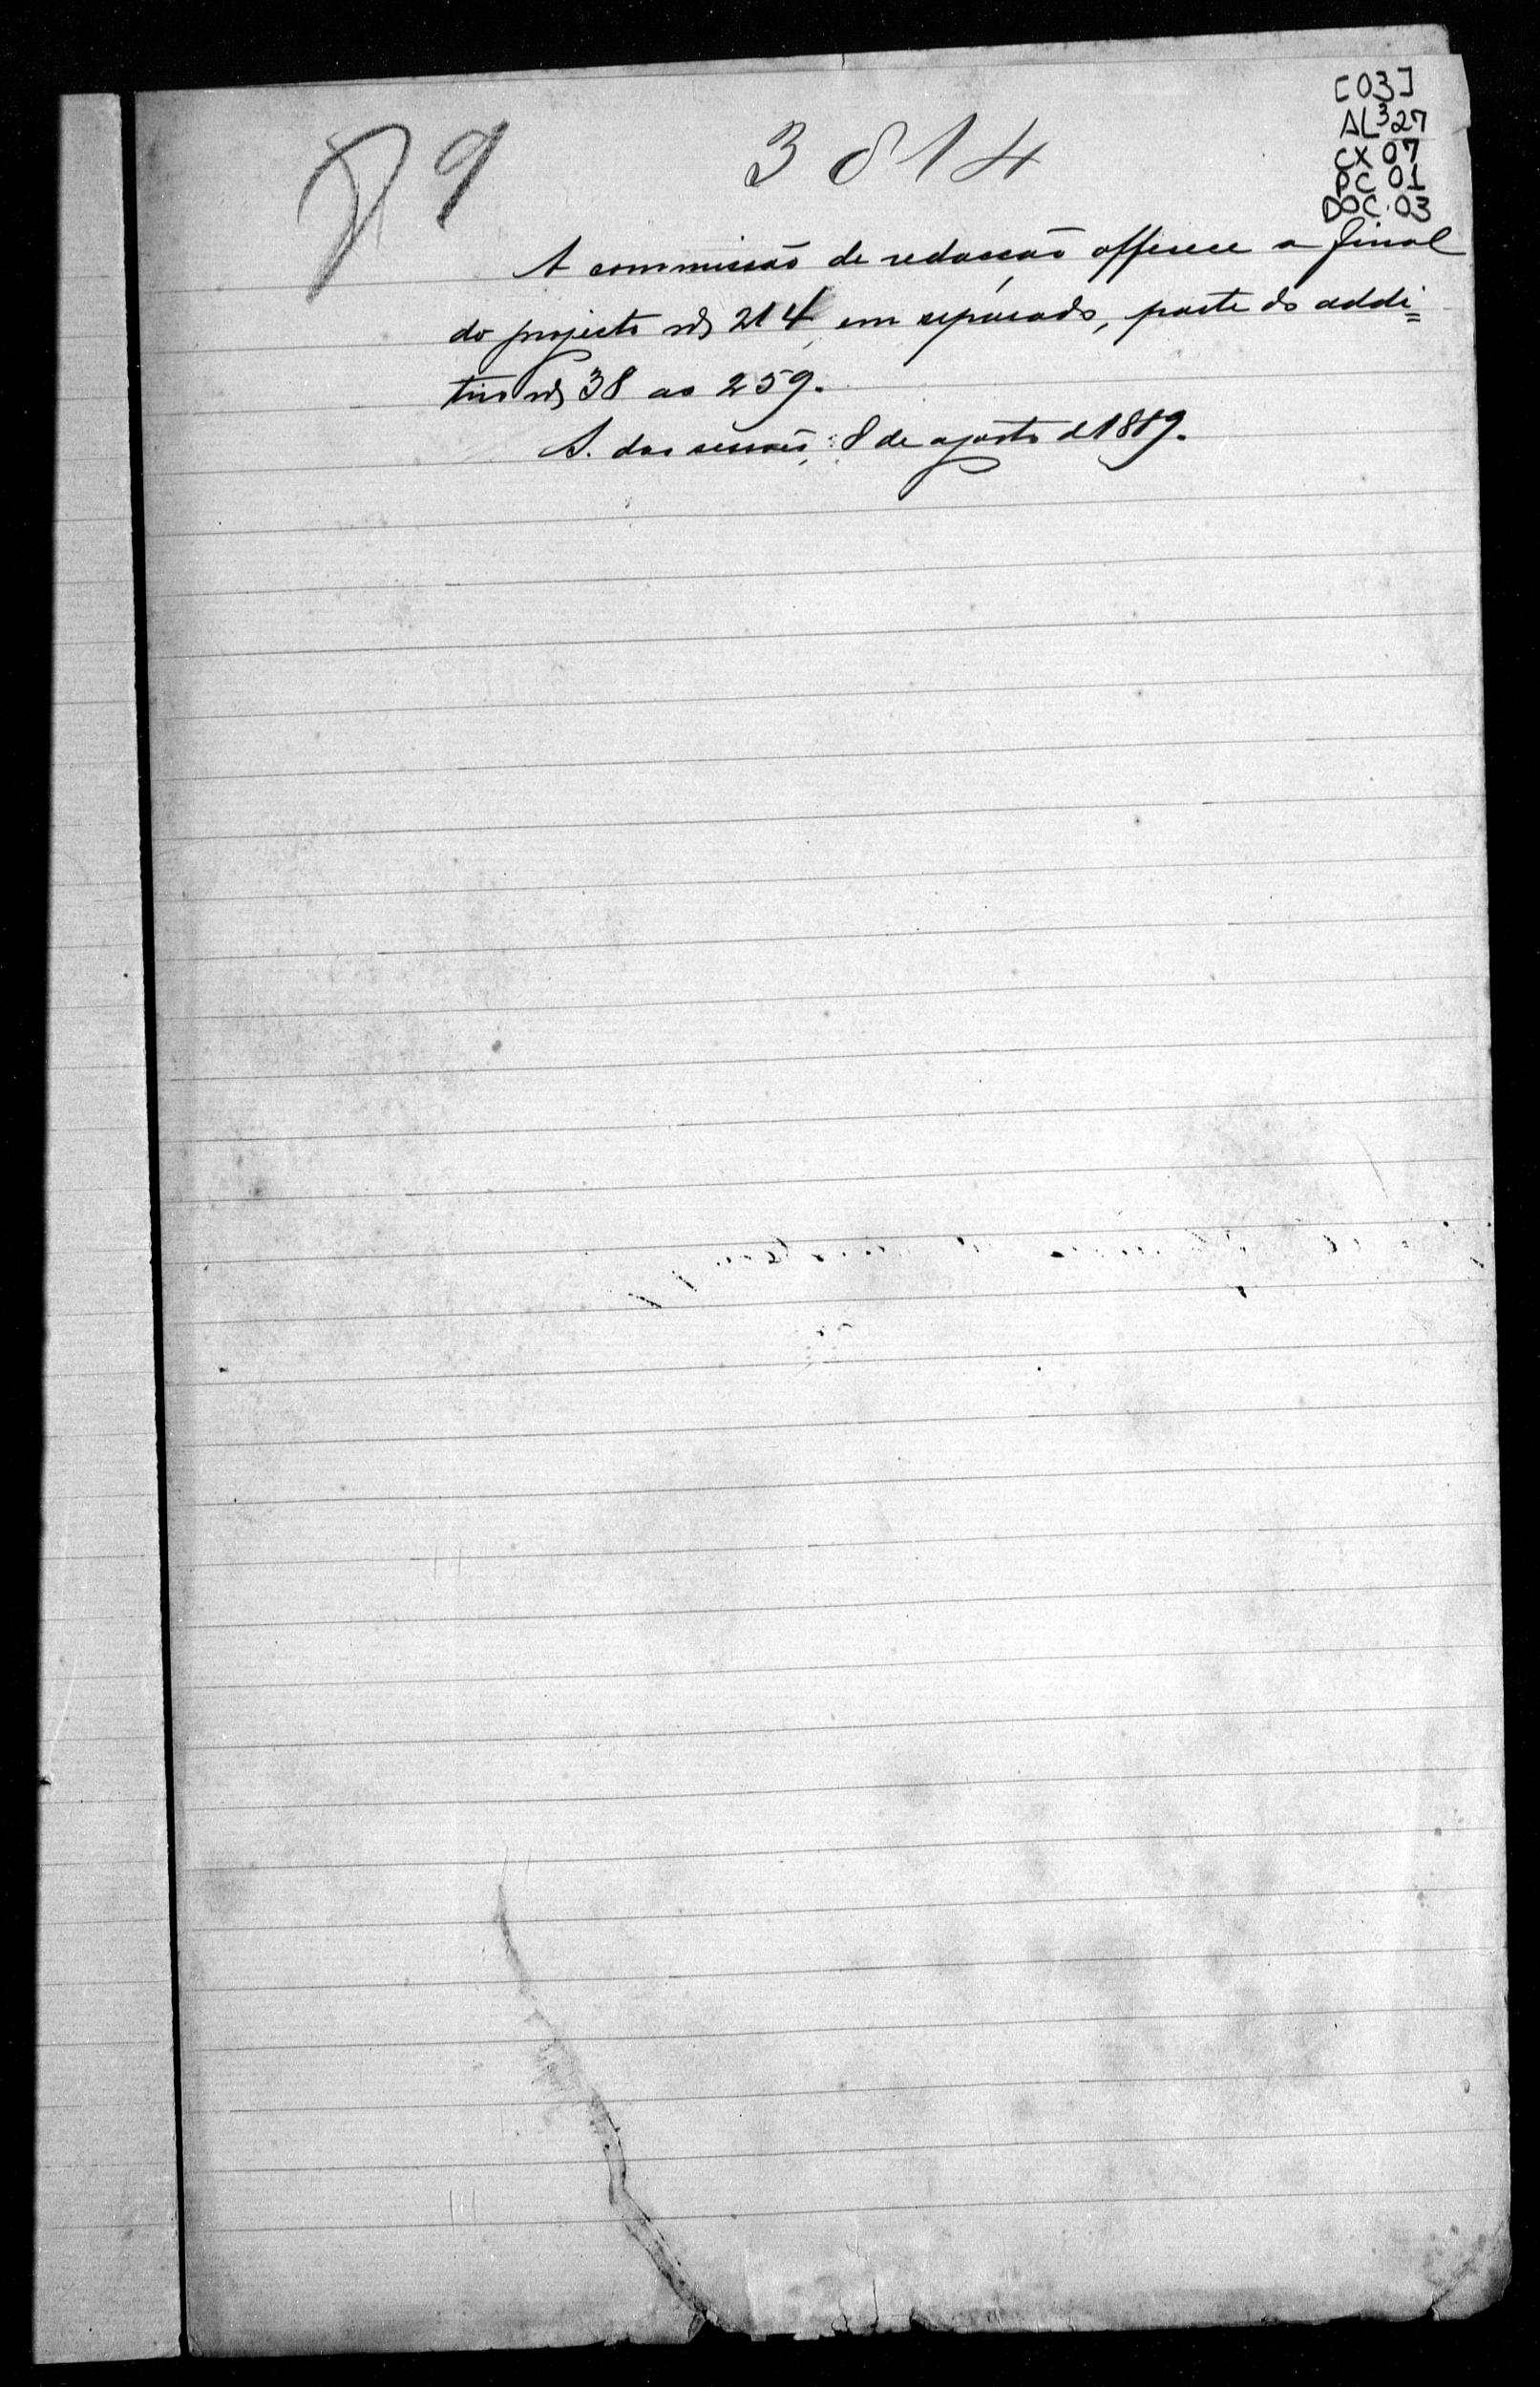 [03]
AL327
CX 07
PC 01
DOC. 03
79
3814
A commissão de redacção offerece a final
do projecto nº 214, em separado, parte do addi=
tivo nº 38 ao 259.
S. das sessões, 8 de agosto d 1889.